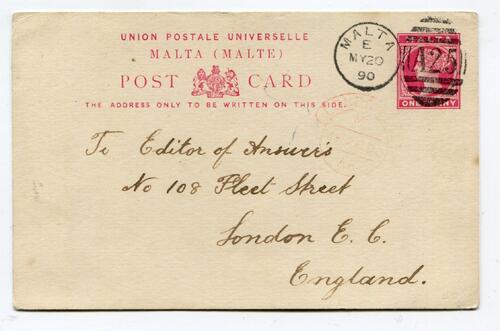 UNION POSTALE UNIVERSELLE
MALTA (MALTE)
POST CARD
THE ADDRESS ONLY TO BE WRITTEN ON THIS SIDE.
MALTA
E
MY20
90
A25
ONE PENNY
To Editor of Answers
No 108 Fleet Street
London E. C.
England.